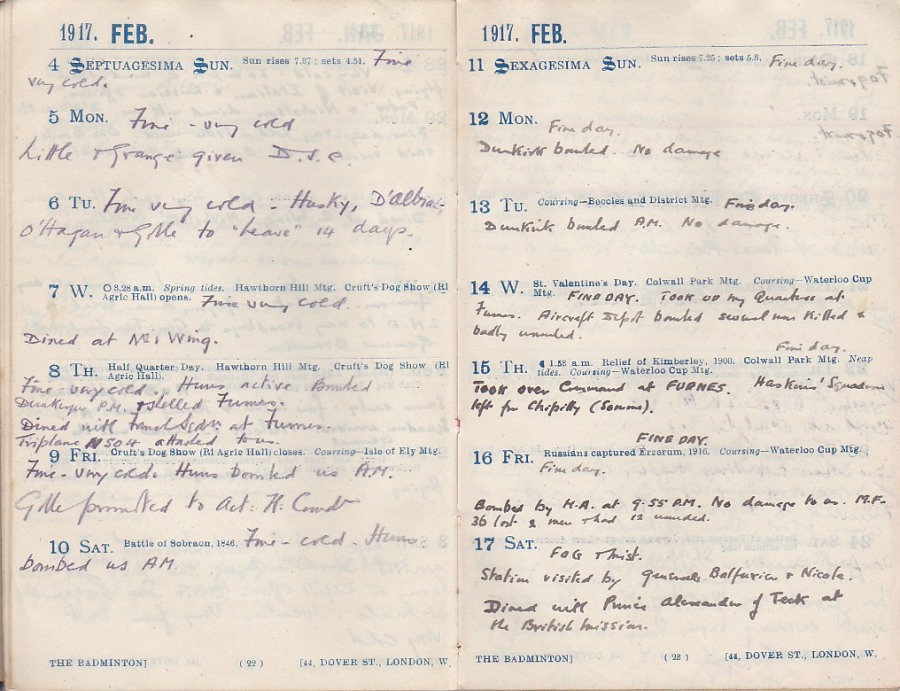 1917. FEB.
4 SEPTUAGESIMA SUN. Sun rises 7.37; sets 4.51. Fine
very cold.
5 MON. Fine - very cold
Little & Grange given D.S.C
6 TU. Fine very cold - Husky, D'Albiac,
O'Hagan & Golle to "Leave" 14 days.
7 W. 3.28 a.m. Spring tides. Hawthorn Hill Mtg. Cruft's Dog Show (Rl
Agric Hall) opens. Fine very cold.
Dined at No 1 Wing.
8 TH. Half Quarter Day. Hawthorn Hill Mtg. Cruft's Dog Show (Rl
Agric Hall).
Fine - very cold. Huns active Bombed
Dunkerque P.M. & shelled Furnes.
Dined with French Sqdn at Furnes.
Triplane N504 attached to us.
9 FRI. Cruft's Dog Show (Rl Agric Hall) closes. Coursing—Isle of Ely Mtg.
Fine - very cold. Huns bombed us A.M.
Golle promoted to Act: Ft. Comdr
10 SAT. Battle of Sobraon, 1846. Fine - cold - Huns
bombed us AM.
THE BADMINTON] (22) [44, DOVER ST., LONDON, W.
1917. FEB.
11 SEXAGESIMA SUN. Sun rises 7.25; sets 5.3. Fine day.
12 MON. Fine day.
Dunkirk bombed. No damage
13 TU. Coursing—Beccles and District Mtg. Fine day.
Dunkirk bombed A.M. No damage.
14 W. St. Valentine's Day. Colwall Park Mtg. Coursing—Waterloo Cup
Mtg. FINE DAY. Took up my Quarters at
Furnes. Aircraft Depot bombed several men killed &
badly wounded.
Fine day.
15 TH. 1.53 a.m. Relief of Kimberley, 1900. Colwall Park Mtg. Neap
tides. Coursing—Waterloo Cup Mtg.
Took over Command at FURNES. Haskins' Squadron
left for Chipilly (Somme).
FINE DAY.
16 FRI. Russians captured Erzerum, 1916. Coursing—Waterloo Cup Mtg.
Fine day.
Bombed by H.A. at 9.55 P.M. No damage to us. M.F.
36 lost 2 men & had 12 wounded.
17 SAT. FOG & mist.
Station visited by Generals Balfurier & Nicole.
Dined with Prince Alexander of Teck at
the British mission.
THE BADMINTON] (23) [44, DOVER ST., LONDON, W.